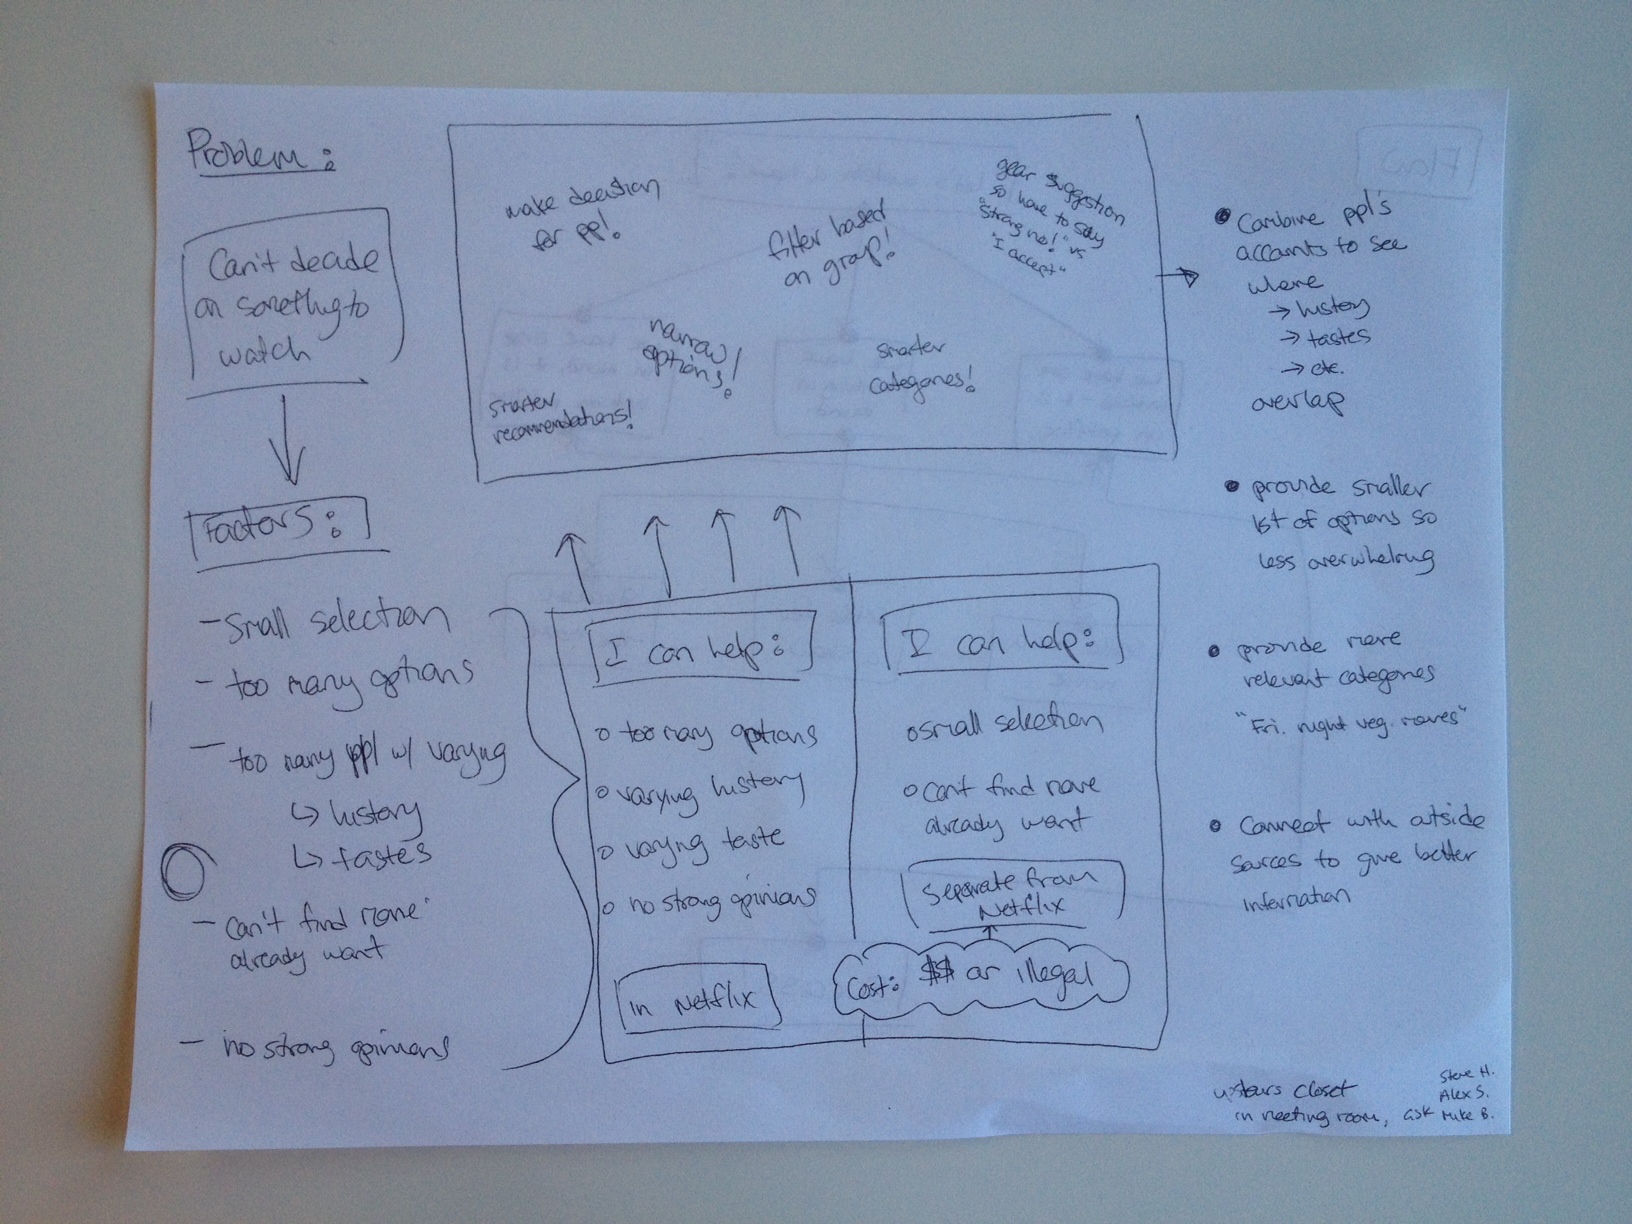 Problem:
Can't decide
on something to
watch
Factors:
- Small selection
- too many options
- too many ppl w/ varying
↳ history
↳ tastes
- Can't find movie
already want
- no strong opinions
make decision
for ppl.
narrow
options!
smarter
recommendations!
filter based
on group!
smarter
categories!
suggestion
so have to say
strong "no!" vs
"I accept"
I can help:
o too many options
o varying history
o varying taste
o no strong opinions
in Netflix
I can help:
o small selection
o can't find movie
already want
Separate from
Netflix
Cost: $$ or illegal
• Combine ppl's
accounts to see
where
→ history
→ tastes
→ etc.
overlap
• provide smaller
list of options so
less overwhelming
• provide more
relevant categories
"Fri. night veg. movies"
• Connect with outside
sources to give better
information
upstairs closet
in meeting room, ask Mike B.
Alex S.
Steve H.